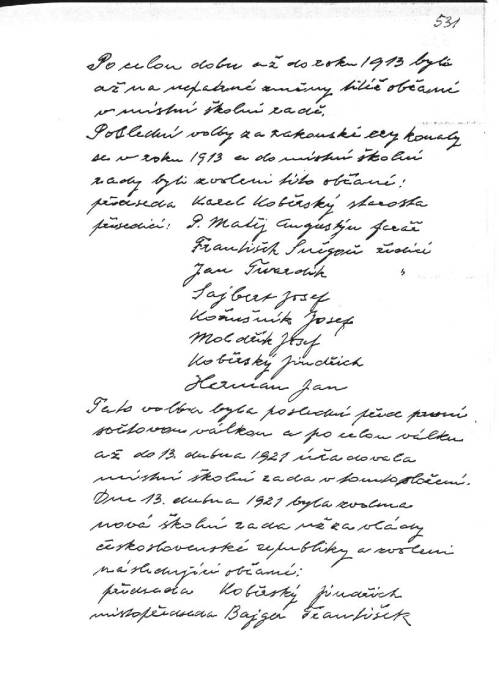 531
Po celou dobu až do roku 1913 byli
až na nepatrné změny titíž občané
v místní školní radě.
Poslední volby za rakouské éry konaly
se v roku 1913 a do místní školní
rady byli zvoleni tito občané:
předseda Karel Kobřský starosta
přísedící: P. Matěj Augustýn farář
František řídící
Jan Tvardík "
Sajbert Josef
Kožušník Josef
Moldřík Josef
Kobřský Jindřich
Herman Jan
Tato volba byla poslední před první
světovou válkou a po celou válku
až do 13. dubna 1921 úřadovala
místní školní rada v tomto složení.
Dne 13. dubna 1921 byla zvolena
nová školní rada už za vlády
československé republiky a zvoleni
následující občané:
předseda Kobřský Jindřich
místopředseda Bajger František